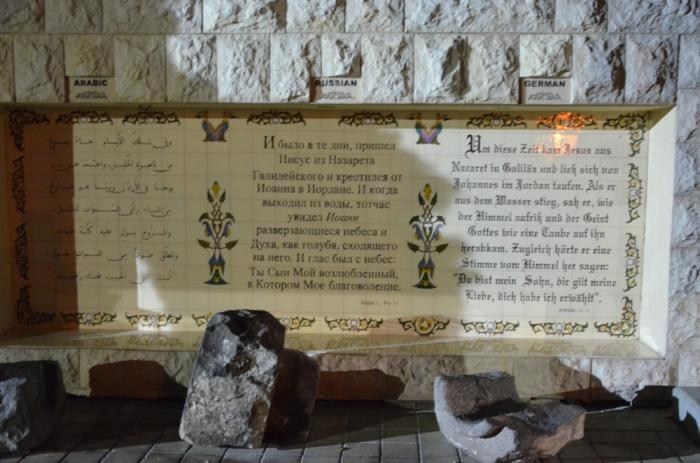 ARABIC
RUSSIAN
GERMAN
وفي تلك الأيام جاء يسوع
من ناصرة الجليل واعتمد
من الماء رأى السموات
والروح ينزل عليه
صوت من السموات
И было в те дни, пришел
Иисус из Назарета
Галилейского и крестился от
Иоанна в Иордане. И когда
выходил из воды, тотчас
увидел Иоанн
разверзающиеся небеса и
Духа, как голубя, сходящего
на него. И глас был с небес:
Ты Сын Мой возлюбленный,
в Котором Мое благоволение.
Марк 1, 9-11
Um diese Zeit kam Jesus aus
Nazaret in Galiläa und ließ sich von
Johannes im Jordan taufen. Als er
aus dem Wasser stieg, sah er, wie
der Himmel aufriß und der Geist
Gottes wie eine Taube auf ihn
herabkam. Zugleich hörte er eine
Stimme vom Himmel her sagen:
"Du bist mein Sohn, dir gilt meine
Liebe, dich habe ich erwählt".